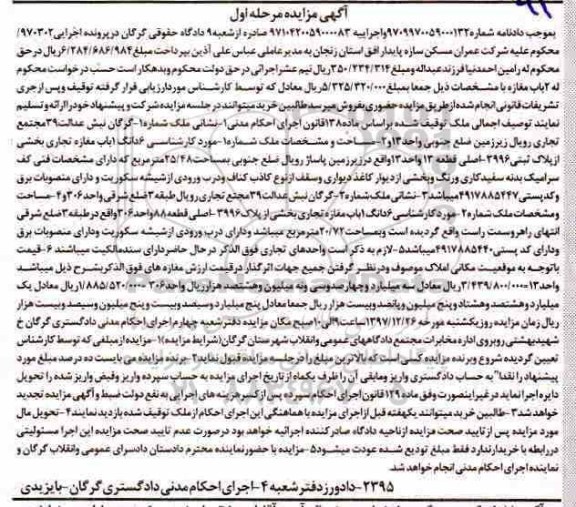 آگهی مزایده مرحله اول
بموجب دادنامه شماره ۹۷۰۹۹۷۰۰۵۹۰۰۰۱۳۲ واجراییه ۹۷۱۰۴۲۰۰۵۹۰۰۰۰۸۳ صادره ازشعبه ۹ دادگاه حقوقی گرگان درپرونده اجرایی ۹۷۰۳۰۲/
محکوم علیه شرکت عمران مسکن سازه پایدار افق استان زنجان به مدیرعاملی عباس علی آذین بپرداخت مبلغ ۶/۲۸۴/۶۸۶/۹۸۴ ریال در حق
محکوم له رامین احمدنیا فرزند عبداله ومبلغ ۳۵۰/۲۳۴/۳۱۴ ریال نیم عشر اجرائی در حق دولت محکوم وبدهکار است حسب درخواست محکوم
له ۲ باب مغازه با مشخصات ذیل جمعا بمبلغ ۵/۳۲۵/۳۲۰/۰۰۰ ریال معادل که توسط کارشناس مورد ارزیابی قرار گرفته توقیف وپس از جری
تشریفات قانونی انجام شده از طریق مزایده حضوری بفروش میرسد طالبین خرید میتوانند در جلسه مزایده شرکت و پیشنهاد خود را ارائه و تسلیم
نمایند توصیف اجمالی ملک توقیف شده بر اساس ماده ۱۳۸ قانون اجرای احکام مدنی ۱- نشانی ملک شماره ۱- گرگان نبش عدالت ۳۹ مجتمع
تجاری رویال زیرزمین ضلع جنوبی واحد ۱۳ و۲- مساحت و مشخصات ملک شماره ۱- مورد کارشناسی ۶ دانگ ۱ باب مغازه تجاری بخشی
از پلاک ثبتی ۳۹۹۶- اصلی قطعه ۱۳ واحد ۱۳ واقع در زیرزمین پاساژ رویال ضلع جنوبی بمساحت ۲۵/۴۸ مترمربع که دارای مشخصات فنی کف
سرامیک بدنه سفیدکاری ورنگ وبخشی از دیوار کاغذ دیواری وسقف از نوع کاذب کناف ودرب ورودی از شیشه سکوریت و دارای منصوبات برق
وکدپستی ۴۹۱۷۸۸۵۴۴۷ میباشد ۳- نشانی ملک شماره ۲- گرگان نبش عدالت ۳۹ مجتمع تجاری رویال طبقه ۳ ضلع شرقی واحد ۳۰۶ و ۴- مساحت
ومشخصات ملک شماره ۲- مورد کارشناسی ۶ دانگ ۱ باب مغازه تجاری بخشی از پلاک ۳۹۹۶- اصلی قطعه ۸۸ واحد ۳۰۶ واقع در طبقه ۳ ضلع شرقی
انتهای راهرو سمت راست واقع گردیده است وبمساحت ۲۰/۷۲ مترمربع میباشد ودارای درب ورودی از شیشه سکوریت و دارای منصوبات برق
ودارای کد پستی ۴۹۱۷۸۸۵۴۴۰ میباشد ۵- لازم به ذکر است واحدهای تجاری فوق الذکر در حال حاضر دارای سند مالکیت میباشند ۶- قیمت
باتوجه به موقعیت مکانی املاک موصوف ودر نظر گرفتن جمیع جهات اثرگذار در قیمت ارزش مغازه های فوق الذکر بشرح ذیل میباشد
واحد ۱۳=۳/۴۳۹/۸۰۰/۰۰۰ ریال معادل سه میلیارد و چهارصد وسی ونه میلیون وهشتصد هزار ریال واحد ۳۰۶ =۱/۸۸۵/۵۲۰/۰۰۰ ریال معادل یک
میلیارد و هشتصد وهشتاد و پنج میلیون وپانصد وبیست هزار ریال جمعا معادل پنج میلیارد و سیصد وبیست و پنج میلیون وسیصد وبیست هزار
ریال زمان مزایده روز یکشنبه مورخه ۱۳۹۷/۱۲/۲۶ ساعت ۹ الی ۱۰ صبح مکان مزایده دفتر شعبه چهارم اجرای احکام مدنی دادگستری گرگان خ
شهید بهشتی روبروی اداره مخابرات مجتمع دادگاههای عمومی وانقلاب شهرستان گرگان (شرایط مزایده) ۱- مزایده از مبلغی که توسط کارشناس
تعیین گردیده شروع وبرنده مزایده کسی است که بالاترین مبلغ را در جلسه مزایده قبول نماید ۲- برنده مزایده می بایست ده در صد مبلغ مورد
پیشنهاد را نقدا" به حساب دادگستری واریز ومابقی آن را ظرف یکماه از تاریخ اجرای مزایده به حساب سپرده واریز وقبض واریز شده را تحویل
دایره اجرا نماید در غیر اینصورت وفق ماده ۱۲۹ قانون اجرای احکام سپرده پس از کسر هزینه های اجرایی به نفع دولت ضبط و آگهی مزایده تجدید
خواهد شد ۳- طالبین خرید میتوانند یکهفته قبل از اجرای مزایده با هماهنگی این اجرای احکام از ملک توقیف شده بازدید نمایند ۴- تحویل مال
مورد مزایده پس از تایید صحت مزایده از ناحیه دادگاه صادر کننده اجرائیه خواهد بود در صورت عدم تایید صحت مزایده این اجرا مسئولیتی
در رابطه با خریدار ندارد فقط مبلغ تودیع شده عودت میشود ۵- مزایده با حضور نماینده محترم دادستان دادسرای عمومی وانقلاب گرگان و
نماینده اجرای احکام مدنی انجام خواهد شد.
۲۳۹۵- دادورز دفتر شعبه ۴ - اجرای احکام مدنی دادگستری گرگان - بایزیدی